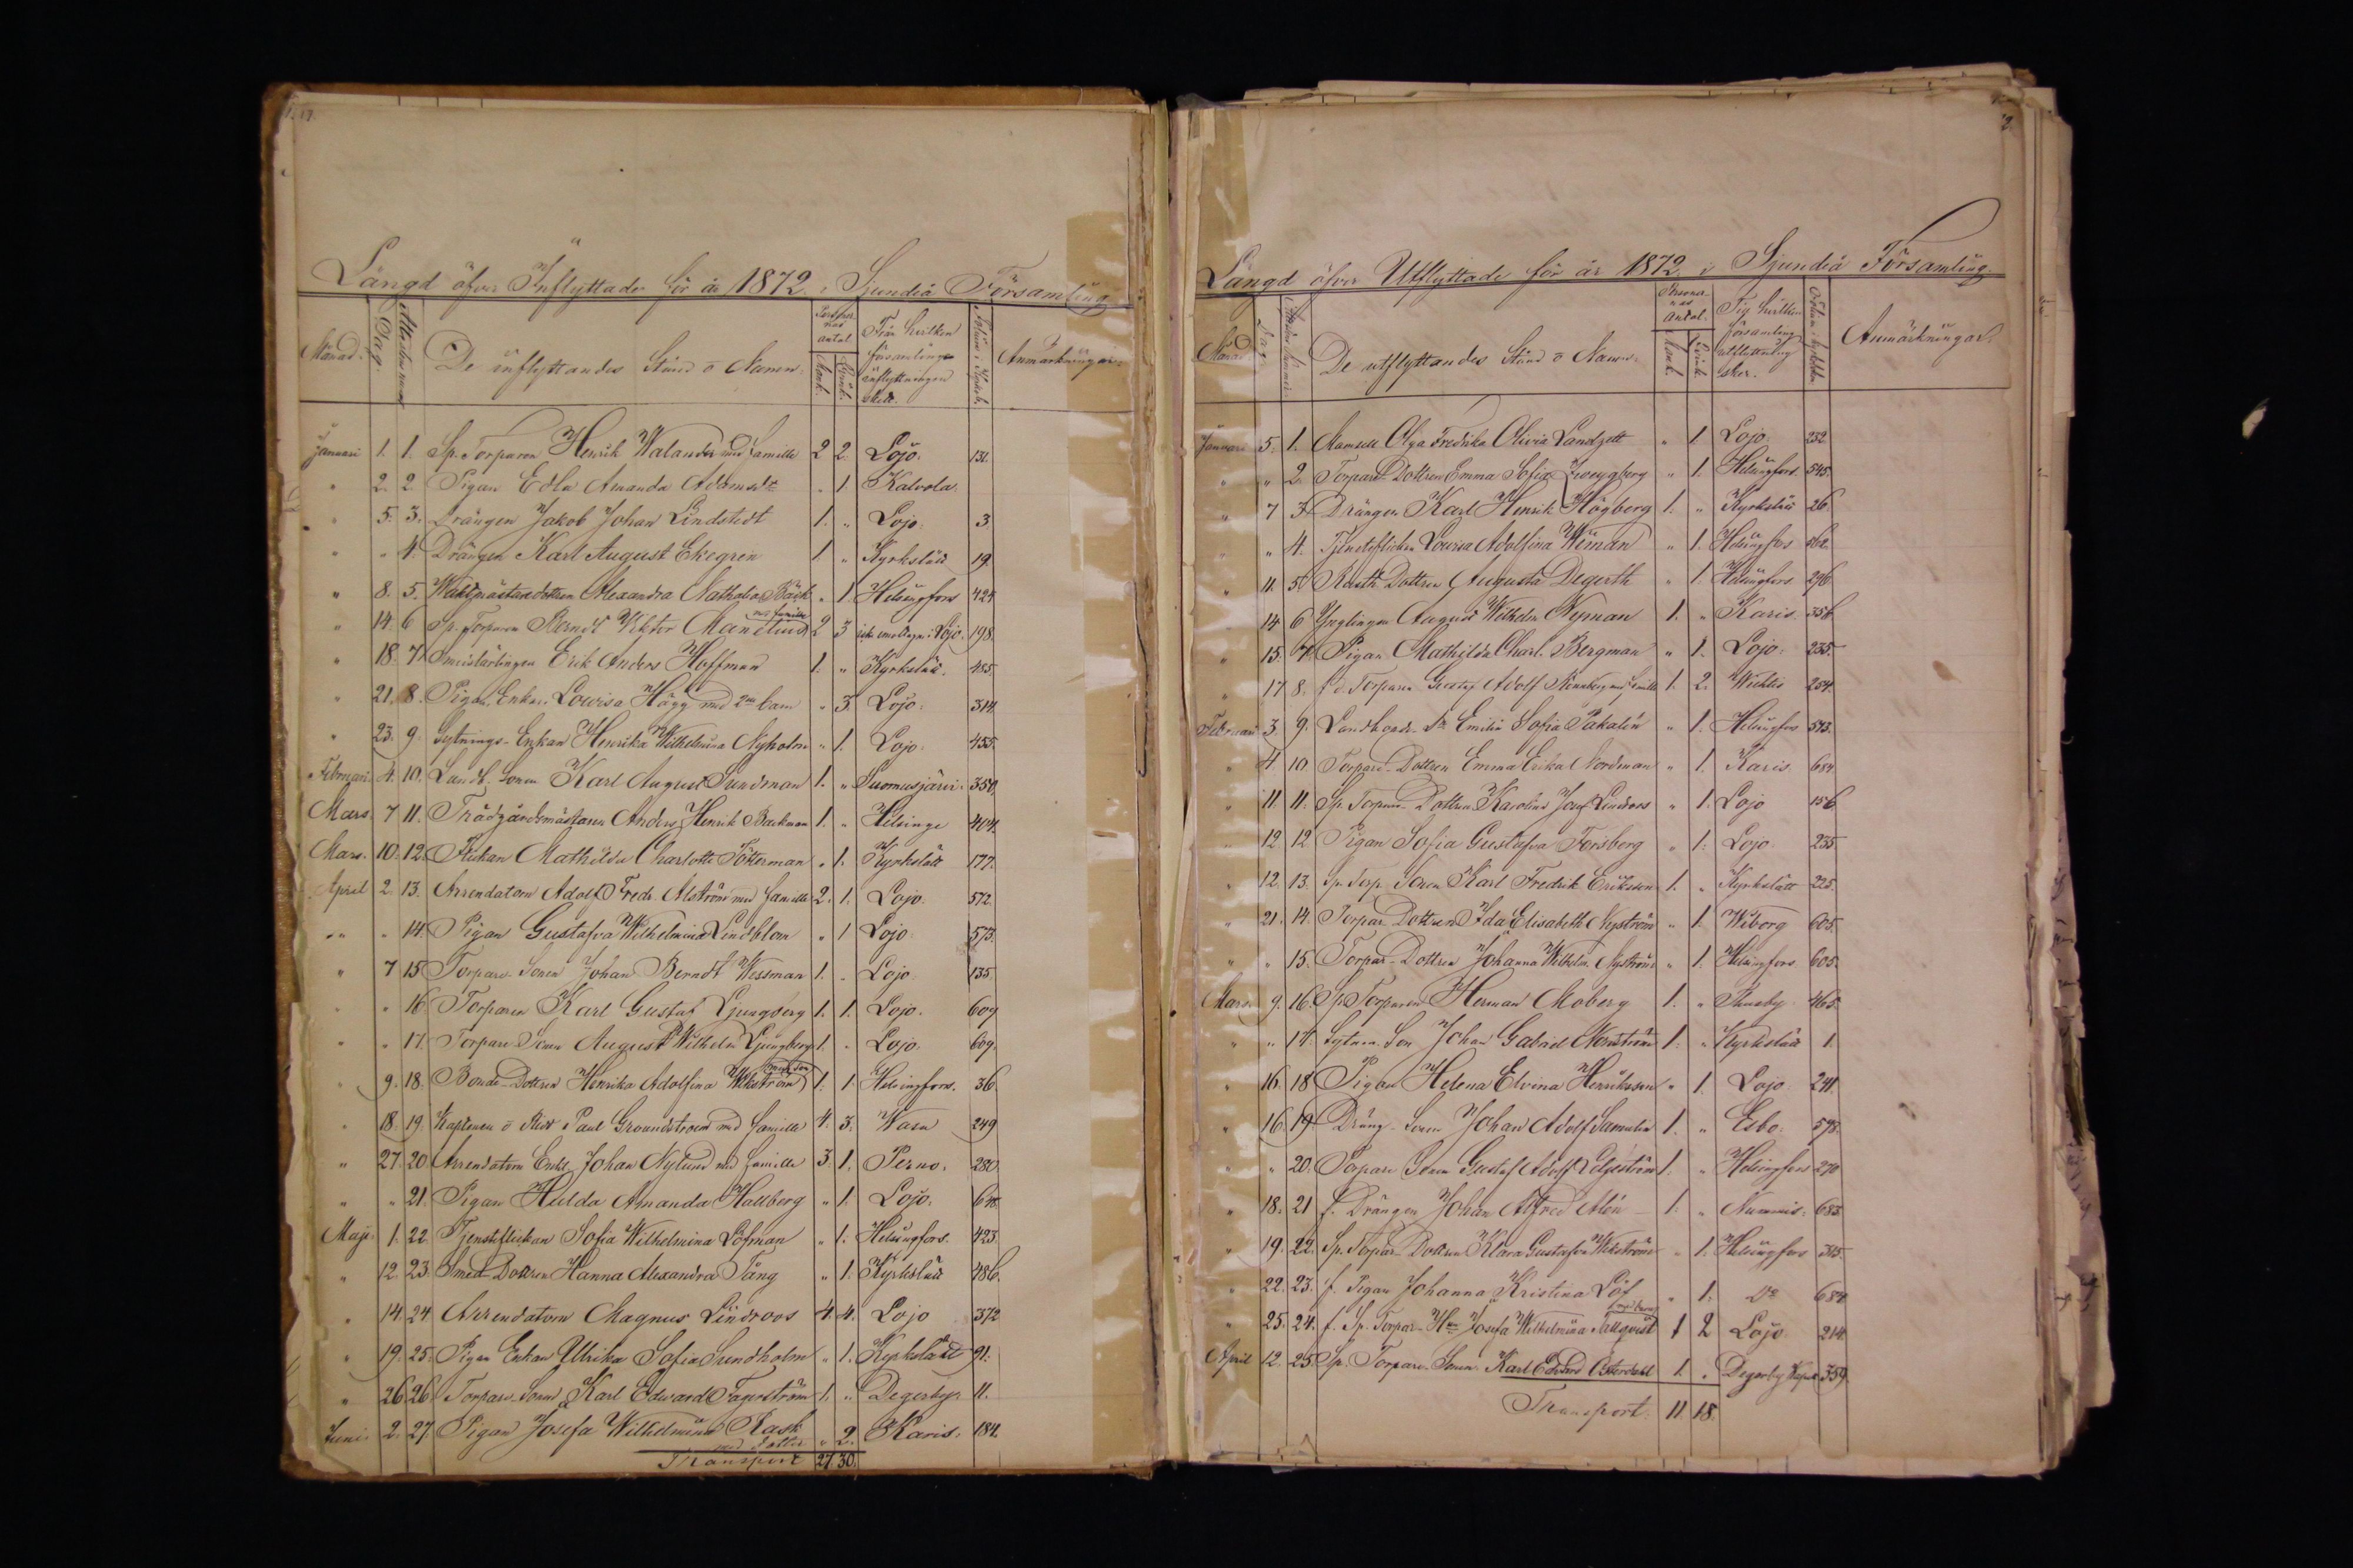 Längd öfver Inflyttade för år 1872 i Sjundeå Församling
Månad. Dag. De inflyttandes Stånd o Namn. Personernas antal. Mank. Qvink. Från hvilken församling inflyttningen skett. Anmärkningar.
Januari 1. 1. Sp. Torparen Henrik Walander med familie 2 2. Lojo. 131.
" 2. 2. Pigan Edla Amanda " 1. Kalvola.
" 5. 3. Drängen Jakob Johan Lindstedt 1. " Lojo. 3
" " 4. Drängen Karl August Ekegren 1 " Kyrkslätt 19.
" 8. 5. Alexandra Nathalia Bäck " 1. Helsingfors 424
" 14 6 Sp. Torparen Berndt Viktor med familie 2 3 Lojo. 198.
" 18. 7. Erik Anders Hoffman 1. " Kyrkslätt. 485.
" 21. 8. Pigan, Enkan Lowisa Hägg med 2ne barn " 3. Lojo. 314.
" 23. 9. Sytnings-Enkan Henrika Wilhelmina Nyholm " 1. Lojo. 455.
Februari 4. 10. Landb. Sonen Karl August Sundman 1. " Suomusjärvi. 350.
Mars. 7 11. Trädgårdsmästaren Anders Henrik Backman 1. " Helsinge 404.
Mars. 10. 12. Flickan Mathilda Charlotta Pötterman " 1. Kyrkslätt 177.
April 2. 13. Arrendatorn Adolf Fredr. Alström med familie 2. 1. Lojo. 572.
" " 14. Pigan Gustafva Wilhelmina Lindblom " 1 Lojo 573.
" 7 15 Torpare Sonen Johan Berndt Wessman 1. " Lojo 135.
" " 16. Torparen Karl Gustaf Ljungberg 1. 1. Lojo. 609
" " 17. Torpare Sonen August Wilhelm Ljungberg 1. " Lojo. 609.
" 9. 18. Bonde-Dottren Henrika Adolfina Wikström 1. 1. Helsingfors. 36.
" 18. 19. Kaptenen o Paul Groundstroem med familie 4. 3. Wasa 249
" 27. 20 Arrendatorn Enkl. Johan Nylund med familie 3. 1. Perno. 280.
" " 21. Pigan Hulda Amanda Hallberg " 1. Lojo.
Maji. 1. 22. Tjensteflickan Sofia Wilhelmina Löfman " 1. Helsingfors. 423.
" 12. 23. Smed Dottren Hanna Alexandra Tång " 1. Kyrkslätt 486.
" 14. 24. Arrendatorn Magnus Lindroos 4. 4. Lojo 372
" 19. 25. Pigan Enkan Ullrika Sofia Sundholm " 1. Kyrkslätt 91.
" 26 26. Torpare Sonen Karl Edward Fagerström 1. " Degerby. 11.
Juni. 2. 27. Pigan Josefa Wilhelmina Rask med dotter " 2. Karis. 184.
Transport 27. 30.
2.
Längd öfver Utflyttade för år 1872 i Sjundeå Församling.
Månad. Dag. De utflyttandes Stånd o Namn. Personernas antal. Mank. Qvink. Til hvilken församling utflyttning sker. Anmärkningar.
Januari 5. 1. Mamsell Olga Fredrika Olivia Landzett " 1 Lojo. 232.
" " 2. Torpare-Dottren Emma Sofia Zweygberg " 1. Helsingfors. 545.
" 7 3 Drängen Karl Henrik Högberg 1. " Kyrkslätt 26.
" " 4. Tjensteflickan Lowisa Adolfina Wiman " 1. Helsingfors
" 11. 5. Dottren Augusta Degerth " 1. Helsingfors 296.
" 14 6 Ynglingen August Wilhelm Nyman 1. " Karis. 356.
" 15. 7. Pigan Mathilda Charl. Bergman " 1. Lojo. 235.
" 17 8. f.d. Torparen Gustaf Adolf 1. 2. Wichtis 254.
Februari 3. 9. Emilia Sofia Pakalén " 1. Helsingfors 593.
" 4. 10 Torpare-Dottren Emma Erika Nordman " 1. Karis. 684.
" 11. 11. Sp. Torpare-Dottren Karolina Josef. Lindroos " 1. Lojo 156
" 12 12 Pigan Sofia Gustafva Forsberg " 1. Lojo. 235.
" 12. 13. Sp. Torp. Sonen Karl Fredrik Eriksson 1. " Kyrkslätt 225.
" 21. 14. Torpar Dottren Ida Elisabeth Nyström " 1. Wiborg 605.
" " 15. Torpar-Dottren Johanna Wilhelm. Nyström " 1. Helsingfors 605.
Mars. 9. 16. Sp. Torparen Herman Moberg 1. " 465.
" " 17. Sytnin. Son Johan Gabriel 1. " Kyrkslätt 1.
" 16. 18. Pigan Helena Elvina Henriksson " 1. Lojo. 241.
" 16. 19. Dräng-Sonen Johan Adolf Samulin 1. " Esbo. 598.
" " 20. Torpare Sonen Gustaf Adolf 1. " Helsingfors 270
" 18. 21 f. Drängen Johan Alfred Alén 1. " Nummis. 683.
" 19. 22. Sp. Torpar Dottren Klara Gustafva Wikström " 1. Helsingfors 315.
" 22. 23. f. Pigan Johanna Kristina Löf " 1. Do 684
" 25. 24. f. Sp. Torpar-Hu Josefa Wilhelmina Tallqvist 1 2 Lojo. 214.
April 12. 25. Sp. Torpare-Sonen Karl Edvard Österdahl 1. " Degerby Kapell 359.
Transport. 11. 18.